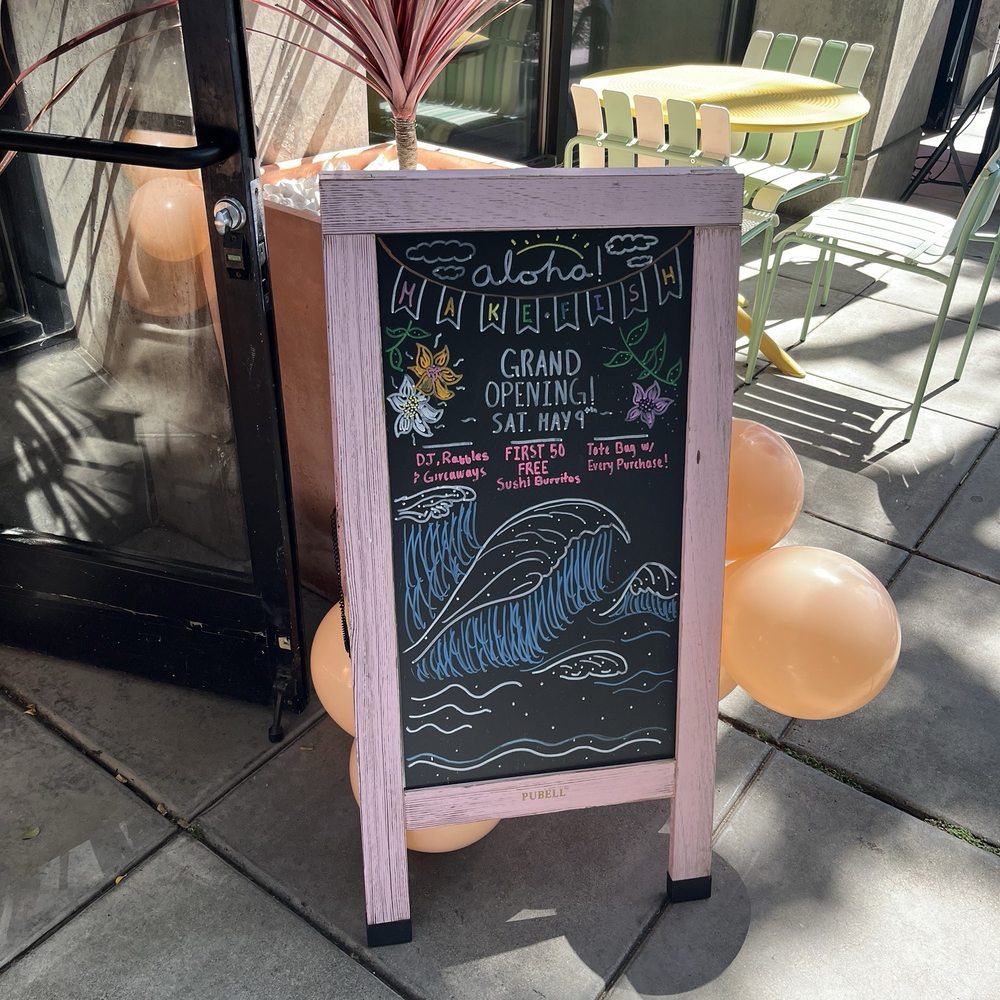 aloha!
MAKE·FISH
GRAND
OPENING!
SAT. MAY 9th
DJ, Rabbles
& Giveaways
FIRST 50
FREE
Sushi Burritos
Tote Bag w/
Every Purchase!
PUBELL